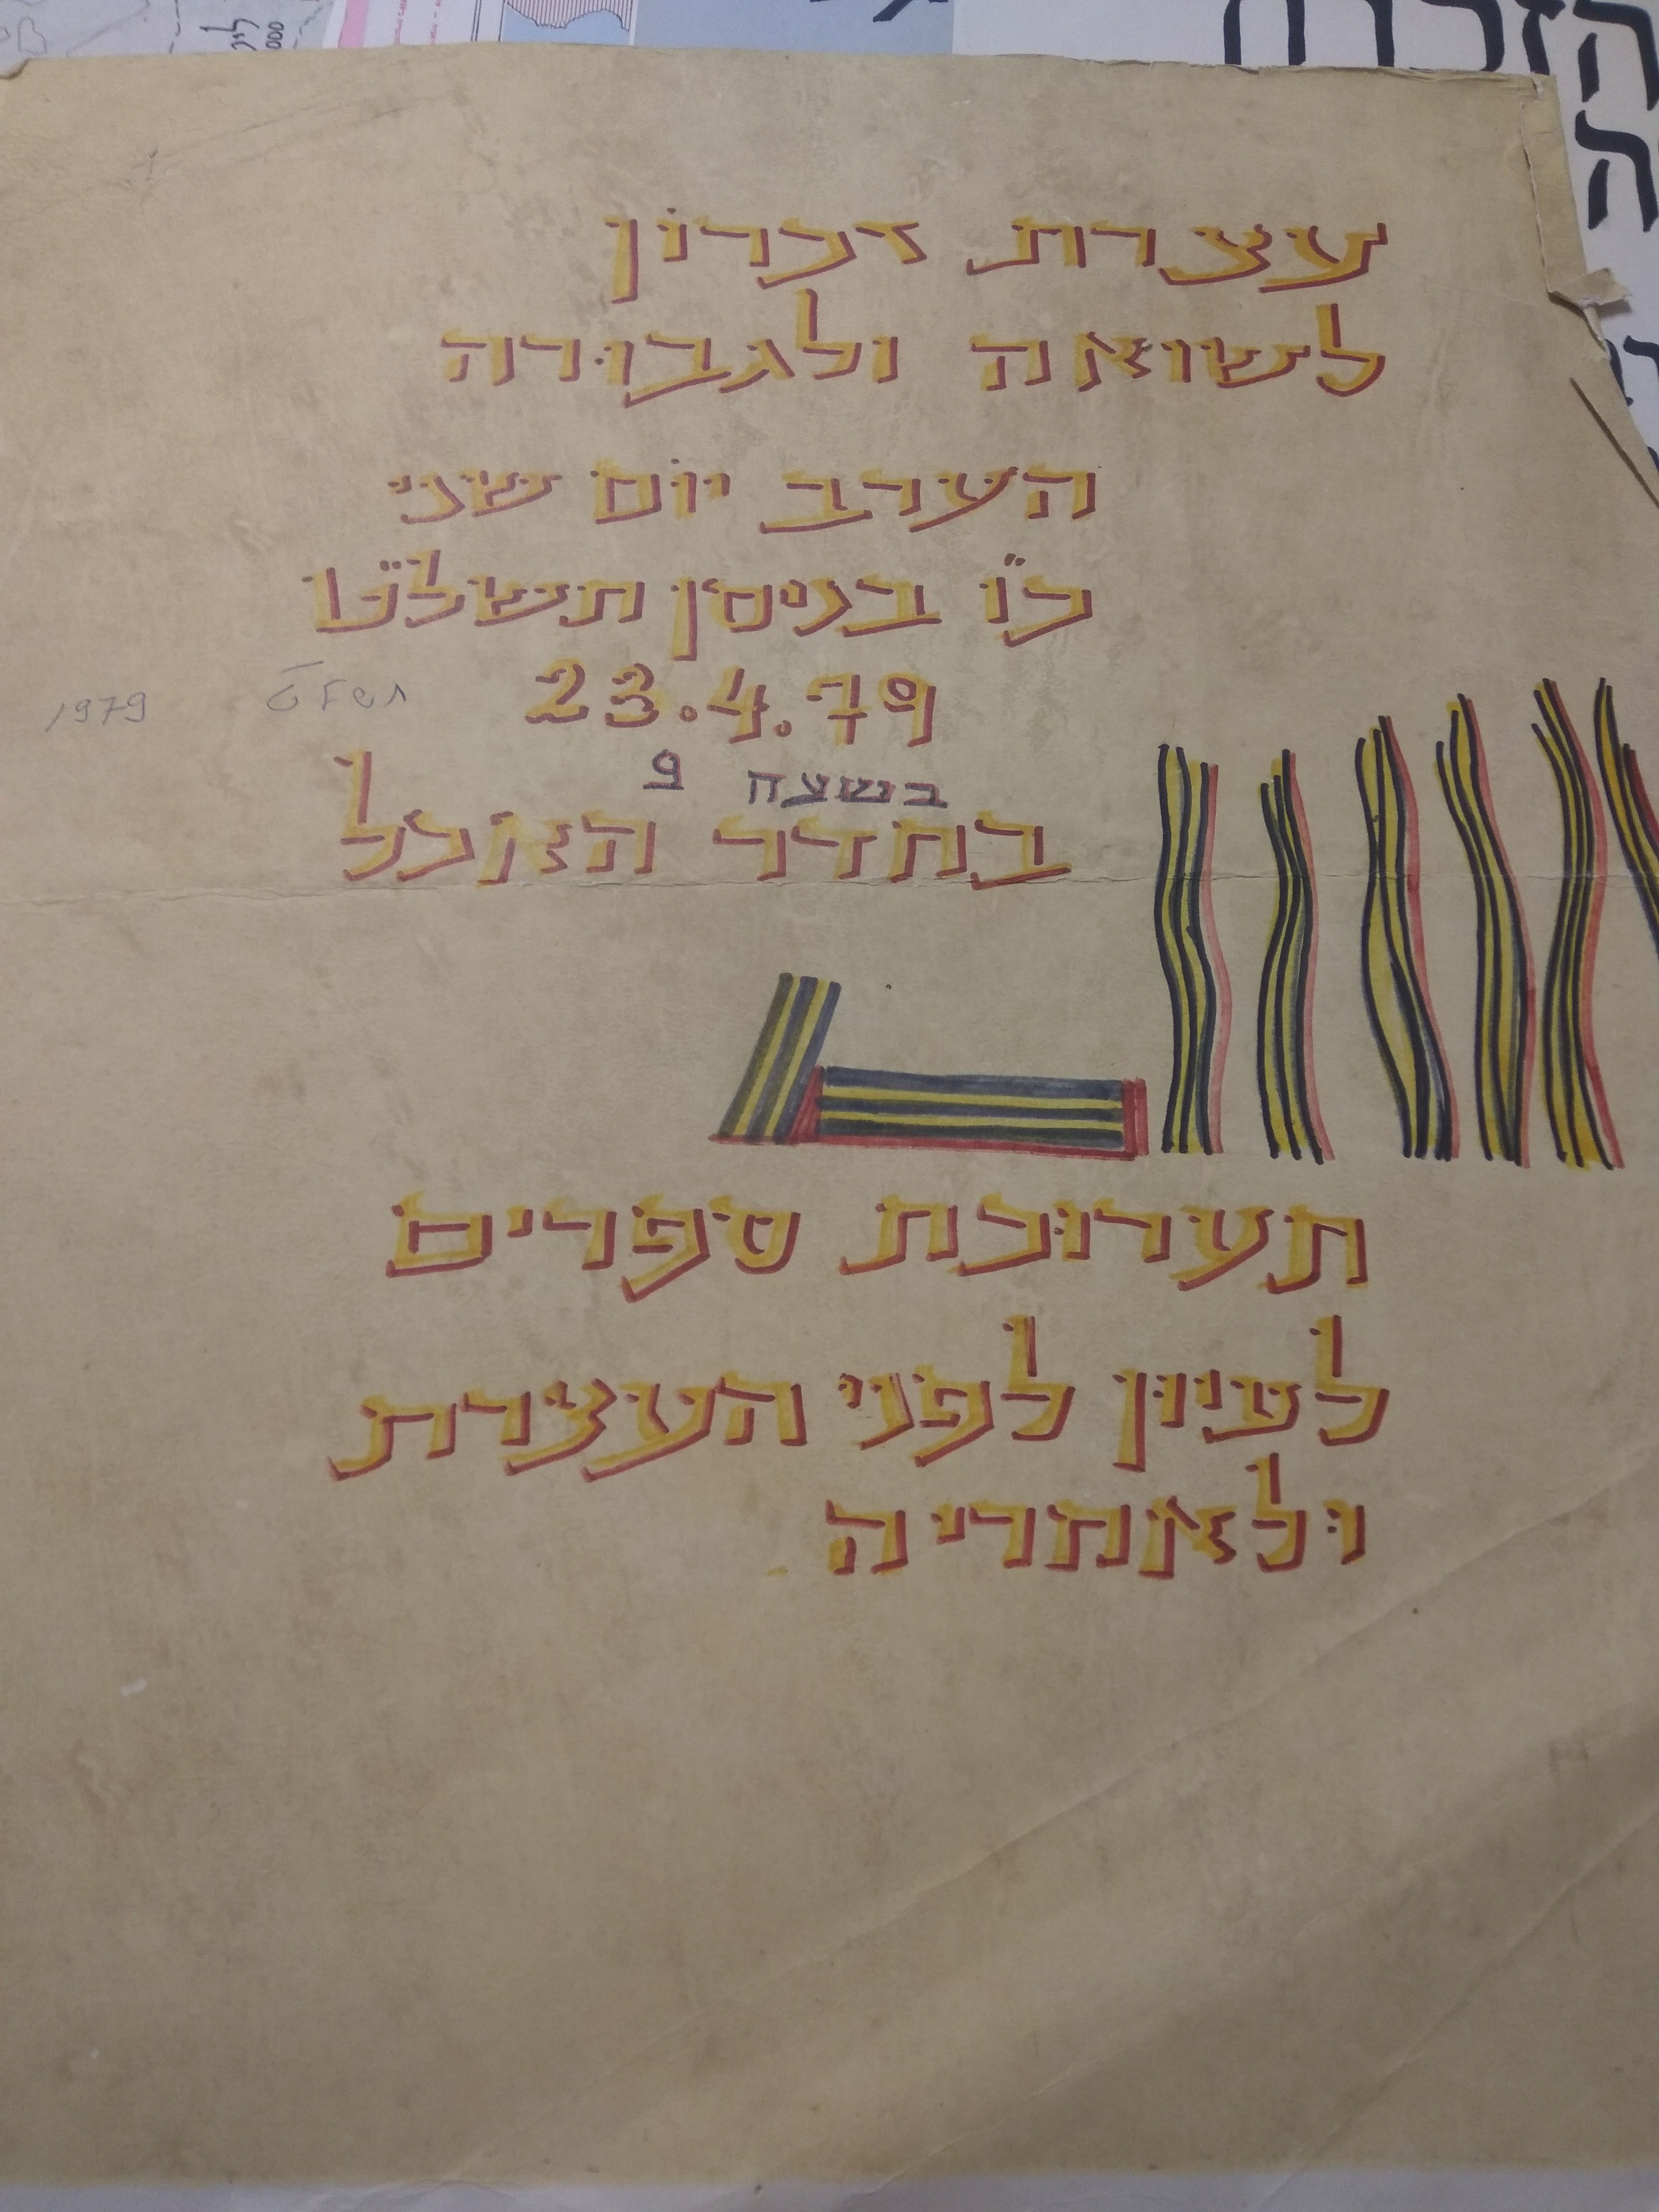 עצרת זכרון
לשואה ולגבורה
הערב יום שני
כ"ו בניסן תשל"ט
23.4.79
תשלט 1979
בשעה 9
בחדר האכל
תערוכת ספרים
לעיון לפני העצרת
ולאחריה